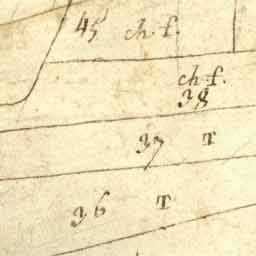 45 ch. f.
ch. f.
38
37 T
36 T